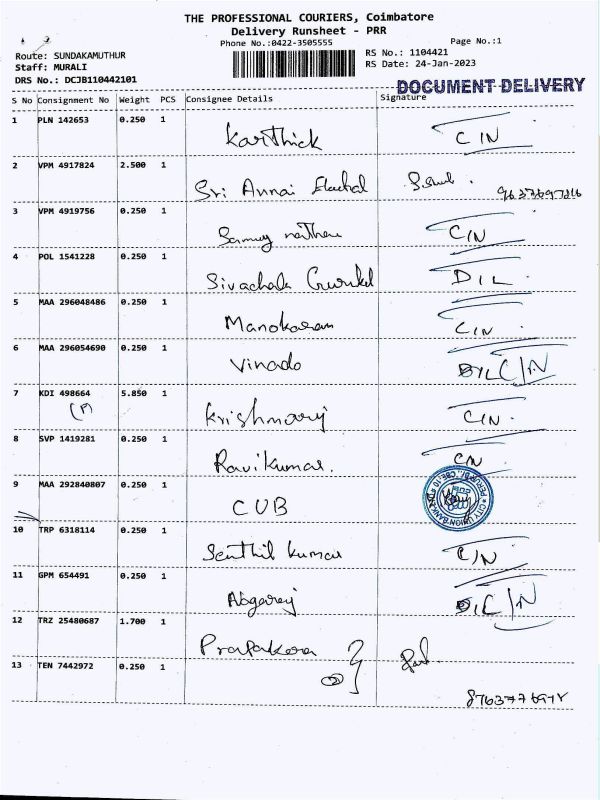 THE PROFESSIONAL COURIERS, Coimbatore
Delivery Runsheet - PRR
Phone No.:0422-3505555
Page No.:1
Route: SUNDAKAMUTHUR
RS No.: 1104421
Staff: MURALI
RS Date: 24-Jan-2023
DRS No.: DCJB110442101
DOCUMENT DELIVERY
S No Consignment No Weight PCS Consignee Details Signature
1 PLN 142653 0.250 1 Karthick C IN
2 VPM 4917824 2.500 1 Sri Annai
3 VPM 4919756 0.250 1 C/N
4 POL 1541228 0.250 1 Sivachala D I L
5 MAA 296048486 0.250 1 Manokaran C/N
6 MAA 296054690 0.250 1 Vinado D/L C/N
7 KDI 498664 5.850 1 Krishnaraj C/N.
(P)
8 SVP 1419281 0.250 1 Ravikumar. C/N
9 MAA 292840807 0.250 1 CUB
10 TRP 6318114 0.250 1 Senthil Kumar C/N
11 GPM 654491 0.250 1 D/L C/N
12 TRZ 25480687 1.700 1 Prapakara
13 TEN 7442972 0.250 1